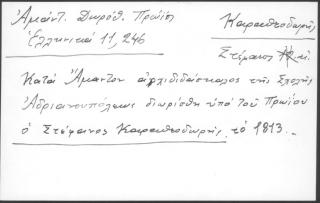 Ἀμάντ. Δωρόθ. Πρώιος
Ἑλληνικά 11, 246
Καραθεοδωρῆς
Στέφανος
Κατά Ἄμαντον ἀρχιδιδάσκαλος τῆς Σχολῆς
Ἀδριανουπόλεως διωρίσθη ὑπό τοῦ Πρωίου
ὁ Στέφανος Καραθεοδωρῆς τό 1813.